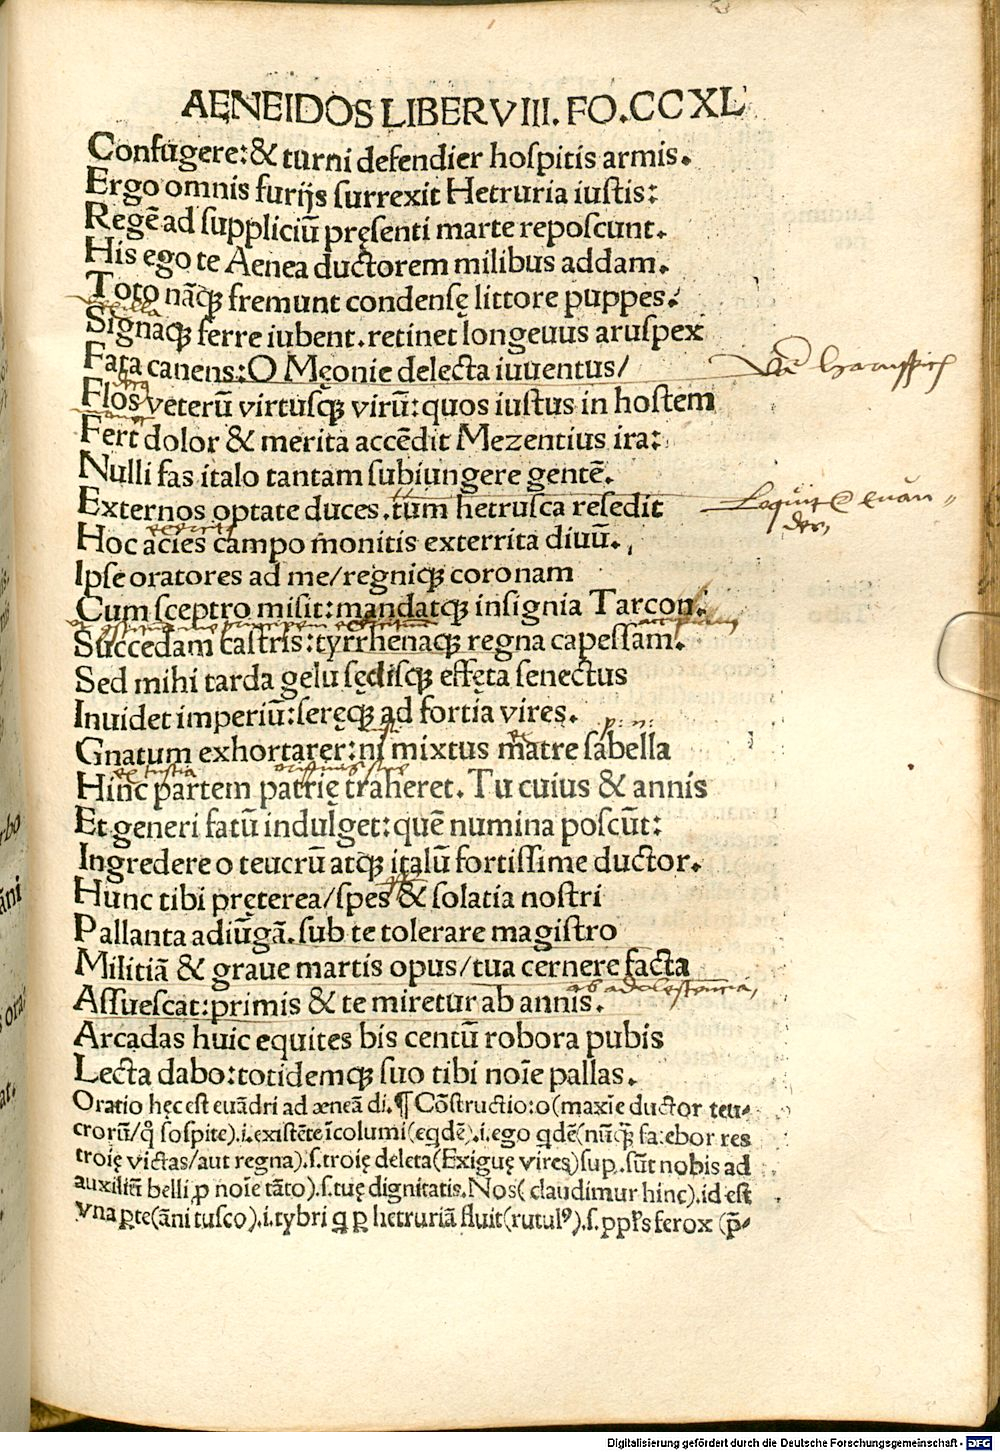 AENEIDOS LIBER VIII. FO. CCXL
Confugere: & turni defendier hospitis armis.
Ergo omnis furijs surrexit Hetruria iustis:
Regē ad suppliciū pręsenti marte reposcunt.
His ego te Aenea ductorem milibus addam.
Toto nāqꝫ fremunt condensę littore puppes.
vexilla
Signaqꝫ ferre iubent. retinet longeuus aruspex
Fata canens: O Męonie delecta iuuentus/
Flos veterū virtusqꝫ virū: quos iustus in hostem
Fert dolor & merita accēdit Mezentius ira:
Nulli fas italo tantam subiungere gentē.
Externos optate duces. tum hetrusca resedit
Loquit̃ euan-
der,
Hoc acies campo monitis exterrita diuū.
Ipse oratores ad me/regniqꝫ coronam
Cum sceptro misit: mandatqꝫ insignia Tarcon:
Succedam castris: tyrrhenaqꝫ regna capessam.
Sed mihi tarda gelu sędisqꝫ effęta senectus
Inuidet imperiū: seręqꝫ ad fortia vires.
Gnatum exhortarer: ni mixtus matre sabella
Hinc partem patrię traheret. Tu cuius & annis
Et generi fatū indulget: quē numina poscūt:
Ingredere o teucrū atqꝫ italū fortissime ductor.
Hunc tibi pręterea/spes & solatia nostri
Pallanta adiūgā. sub te tolerare magistro
Militiā & graue martis opus/tua cernere facta
ab adolescentia,
Assuescat: primis & te miretur ab annis.
Arcadas huic equites bis centū robora pubis
Lecta dabo: totidemqꝫ suo tibi noīe pallas.
Oratio hęc est euādri ad æneā di. ¶ Cōstructio: o (maxīe ductor teu-
crorū/qͦ sospite). i. existēte īcolumi (eqdē). i. ego qdē (nūqꝫ̄ fatebor res
troię victas/aut regna). s. troię deleta (Exiguę vires) sup. sūt nobis ad
auxiliū belli ꝓ noīe tāto). s. tuę dignitatis. Nos (claudimur hinc). id est
vna ꝑte (āni tusco). i. tybri q ꝑ hetruriā fluit (rutulꝰ). s. ppl's ferox (p̄-
Digitalisierung gefördert durch die Deutsche Forschungsgemeinschaft - DFG